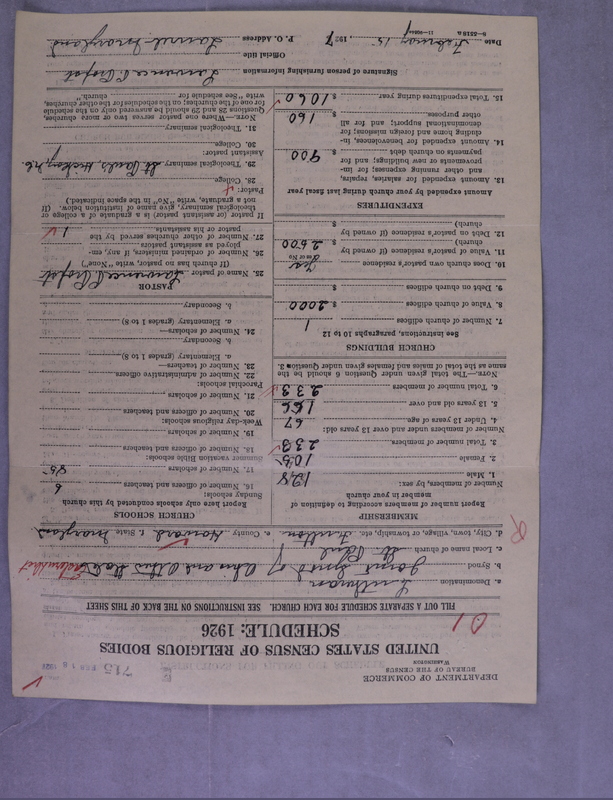 DEPARTMENT OF COMMERCE
BUREAU OF THE CENSUS
WASHINGTON
715
FEB 18 1927
UNITED STATES CENSUS OF RELIGIOUS BODIES
SCHEDULE: 1926
91
FILL OUT A SEPARATE SCHEDULE FOR EACH CHURCH. SEE INSTRUCTIONS ON THE BACK OF THIS SHEET
a. Denomination Lutheran
b. Synod Joint Synod of Ohio and Other States
c. Local name of church St. Paul
d. City, town, village, or township, etc. Fulton e. County Howard f. State Maryland
MEMBERSHIP
Report number of members according to definition of member in your church
Number of members, by sex:
1. Male 128
2. Female 105
3. Total number of members 233
Number of members under and over 13 years old:
4. Under 13 years of age 67
5. 13 years old and over 166
6. Total number of members 233
NOTE.—The total given under Question 6 should be the same as the total of males and females given under Question 3.
CHURCH BUILDINGS
See instructions, paragraphs 10 to 12
7. Number of church edifices 1
8. Value of church edifices $ 2000
9. Debt on church edifices $
10. Does church own pastor's residence Yes
(Yes or No)
11. Value of pastor's residence (if owned by church) $ 2500
12. Debt on pastor's residence (if owned by church) $
EXPENDITURES
Amount expended by your church during last fiscal year
13. Amount expended for salaries, repairs, and other running expenses; for improvements or new building; and for payments on church debt $ 900
14. Amount expended for benevolences, including home and foreign missions; for denominational support; and for all other purposes $ 160
15. Total expenditures during year $ 1060
CHURCH SCHOOLS
Report here only schools conducted by this church
Sunday schools:
16. Number of officers and teachers 6
17. Number of scholars 85
Summer vacation Bible schools:
18. Number of officers and teachers
19. Number of scholars
Week-day religious schools:
20. Number of officers and teachers
21. Number of scholars
Parochial schools:
22. Number of administrative officers
23. Number of teachers—
a. Elementary (grades 1 to 8)
b. Secondary
24. Number of scholars—
a. Elementary (grades 1 to 8)
b. Secondary
PASTOR
25. Name of pastor Lawrence C. Propst
(If church has no pastor, write "None")
26. Number of ordained ministers, if any, employed as assistant pastors
27. Number of other churches served by the pastor or his assistants 1
If pastor or assistant pastor is a graduate of a college or theological seminary, give name of institution below. (If not a graduate, write "No" in the space indicated.)
Pastor:
28. College
29. Theological seminary St. Pauls, Hickory, N.C.
Assistant pastor:
30. College
31. Theological seminary
NOTE.—Where one pastor serves two or more churches, Questions 28 and 29 should be answered only on the schedule for one of the churches; on the schedules for the other churches, write "See schedule for church."
Signature of person furnishing information Lawrence C. Propst
Official title
P. O. Address Laurel Maryland
Date February 15 1927